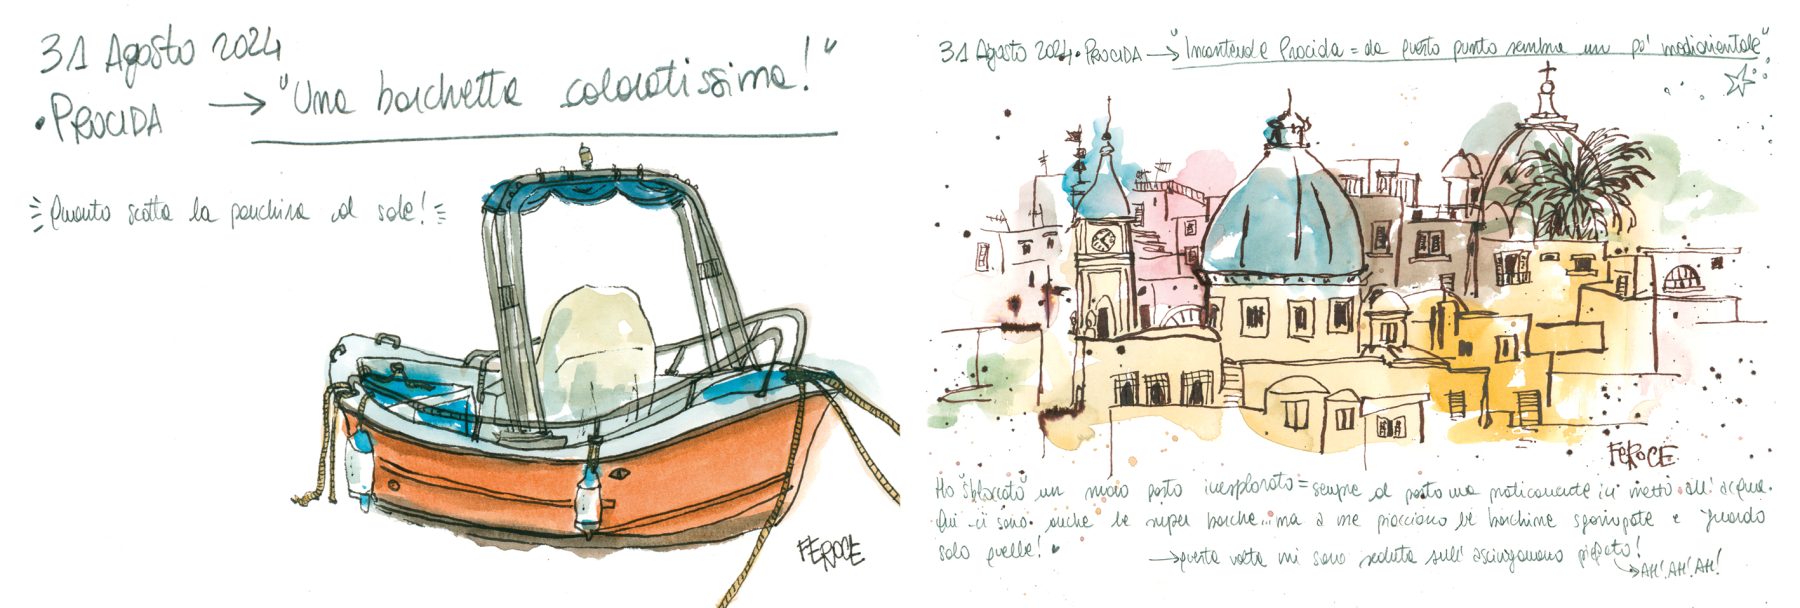 31 Agosto 2024
• PROCIDA → "Una barchetta coloratissima!"
Quanto scotta la panchina al sole!
FEROCE
31 Agosto 2024 • PROCIDA → "Incantevole Procida = da questo punto sembra un po' mediorientale"
FEROCE
Ho "sbloccato" un nuovo posto inesplorato = sempre al porto ma praticamente in mezzo all'acqua.
Qui ci sono anche le super barche... ma a me piacciono le barchine sgarrupate e guardo
solo quelle! ♥
→ questa volta mi sono seduta sull'asciugamano piegato!
→ AH! AH! AH!